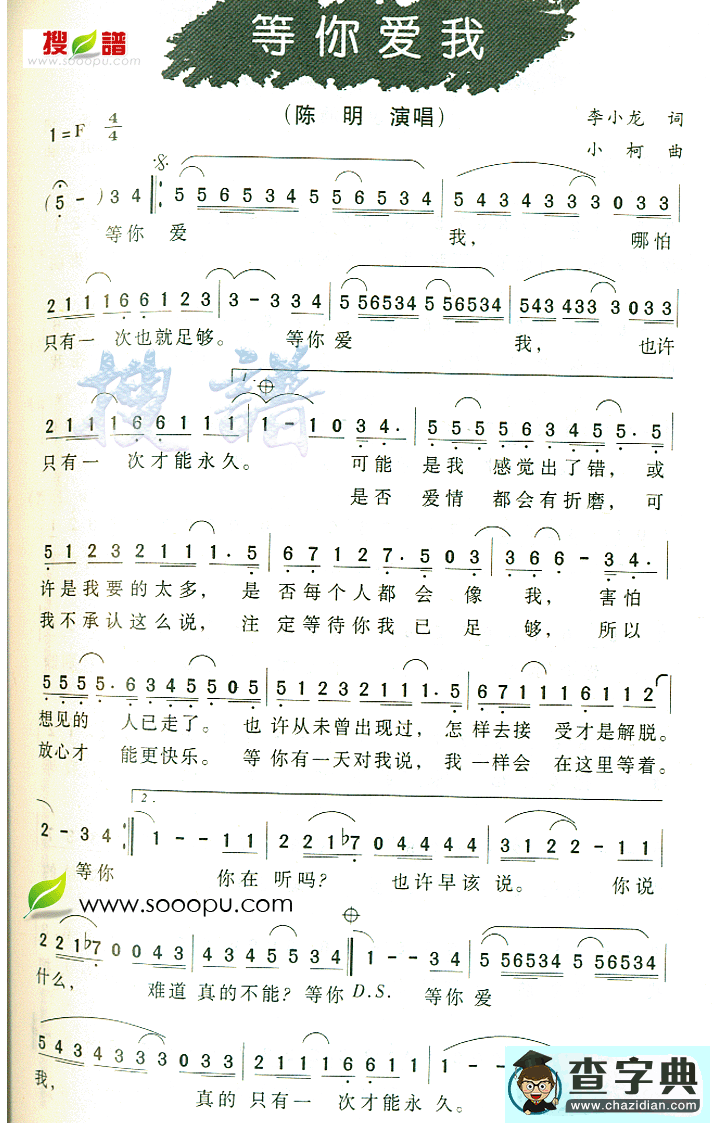 搜譜
www.sooopu.com
等你爱我
(陈 明 演唱)
李小龙 词
1=F 4/4
小 柯 曲
(5 - ) 3 4 5 5 6 5 3 4 5 5 6 5 3 4 5 4 3 4 3 3 3 0 3 3
等你 爱 我, 哪怕
2 1 1 1 6 6 1 2 3 3 - 3 3 4 5 56534 5 56534 543 433 3 0 3 3
只有一 次也就足够。 等你 爱 我, 也许
搜譜
1.
2 1 1 1 6 6 1 1 1 1 - 1 0 3 4. 5 5 5 5 6 3 4 5 5. 5
只有一 次才能永久。 可能 是我 感觉出了错, 或
是否 爱情 都会有折磨, 可
5 1 2 3 2 1 1 1. 5 6 7 1 2 7. 5 0 3 3 6 6 - 3 4.
许是我要的太多, 是 否每个人都 会 像 我, 害怕
我不承认这么说, 注 定等待你我已 足 够, 所以
5 5 5 5. 6 3 4 5 5 0 5 5 1 2 3 2 1 1 1. 5 6 7 1 1 1 1 6 1 1 2
想见的 人已走了。 也 许从未曾出现过, 怎 样去接 受才是解脱。
放心才 能更快乐。 等 你有一天对我说, 我 一样会 在这里等着。
2.
2 - 3 4 1 - - 1 1 2 2 1 ♭7 0 4 4 4 4 3 1 2 2 - 1 1
等你 你在 听吗? 也许早该 说。 你说
www.sooopu.com
2 2 1 ♭7 0 0 4 3 4 3 4 5 5 3 4 1 - - 3 4 5 56534 5 56534
什么, 难道 真的不能? 等你 D.S. 等你 爱
5 4 3 4 3 3 3 0 3 3 2 1 1 1 6 6 1 1 1 - -
我, 真的 只有一 次才能永 久。
查字典
www.chazidian.com